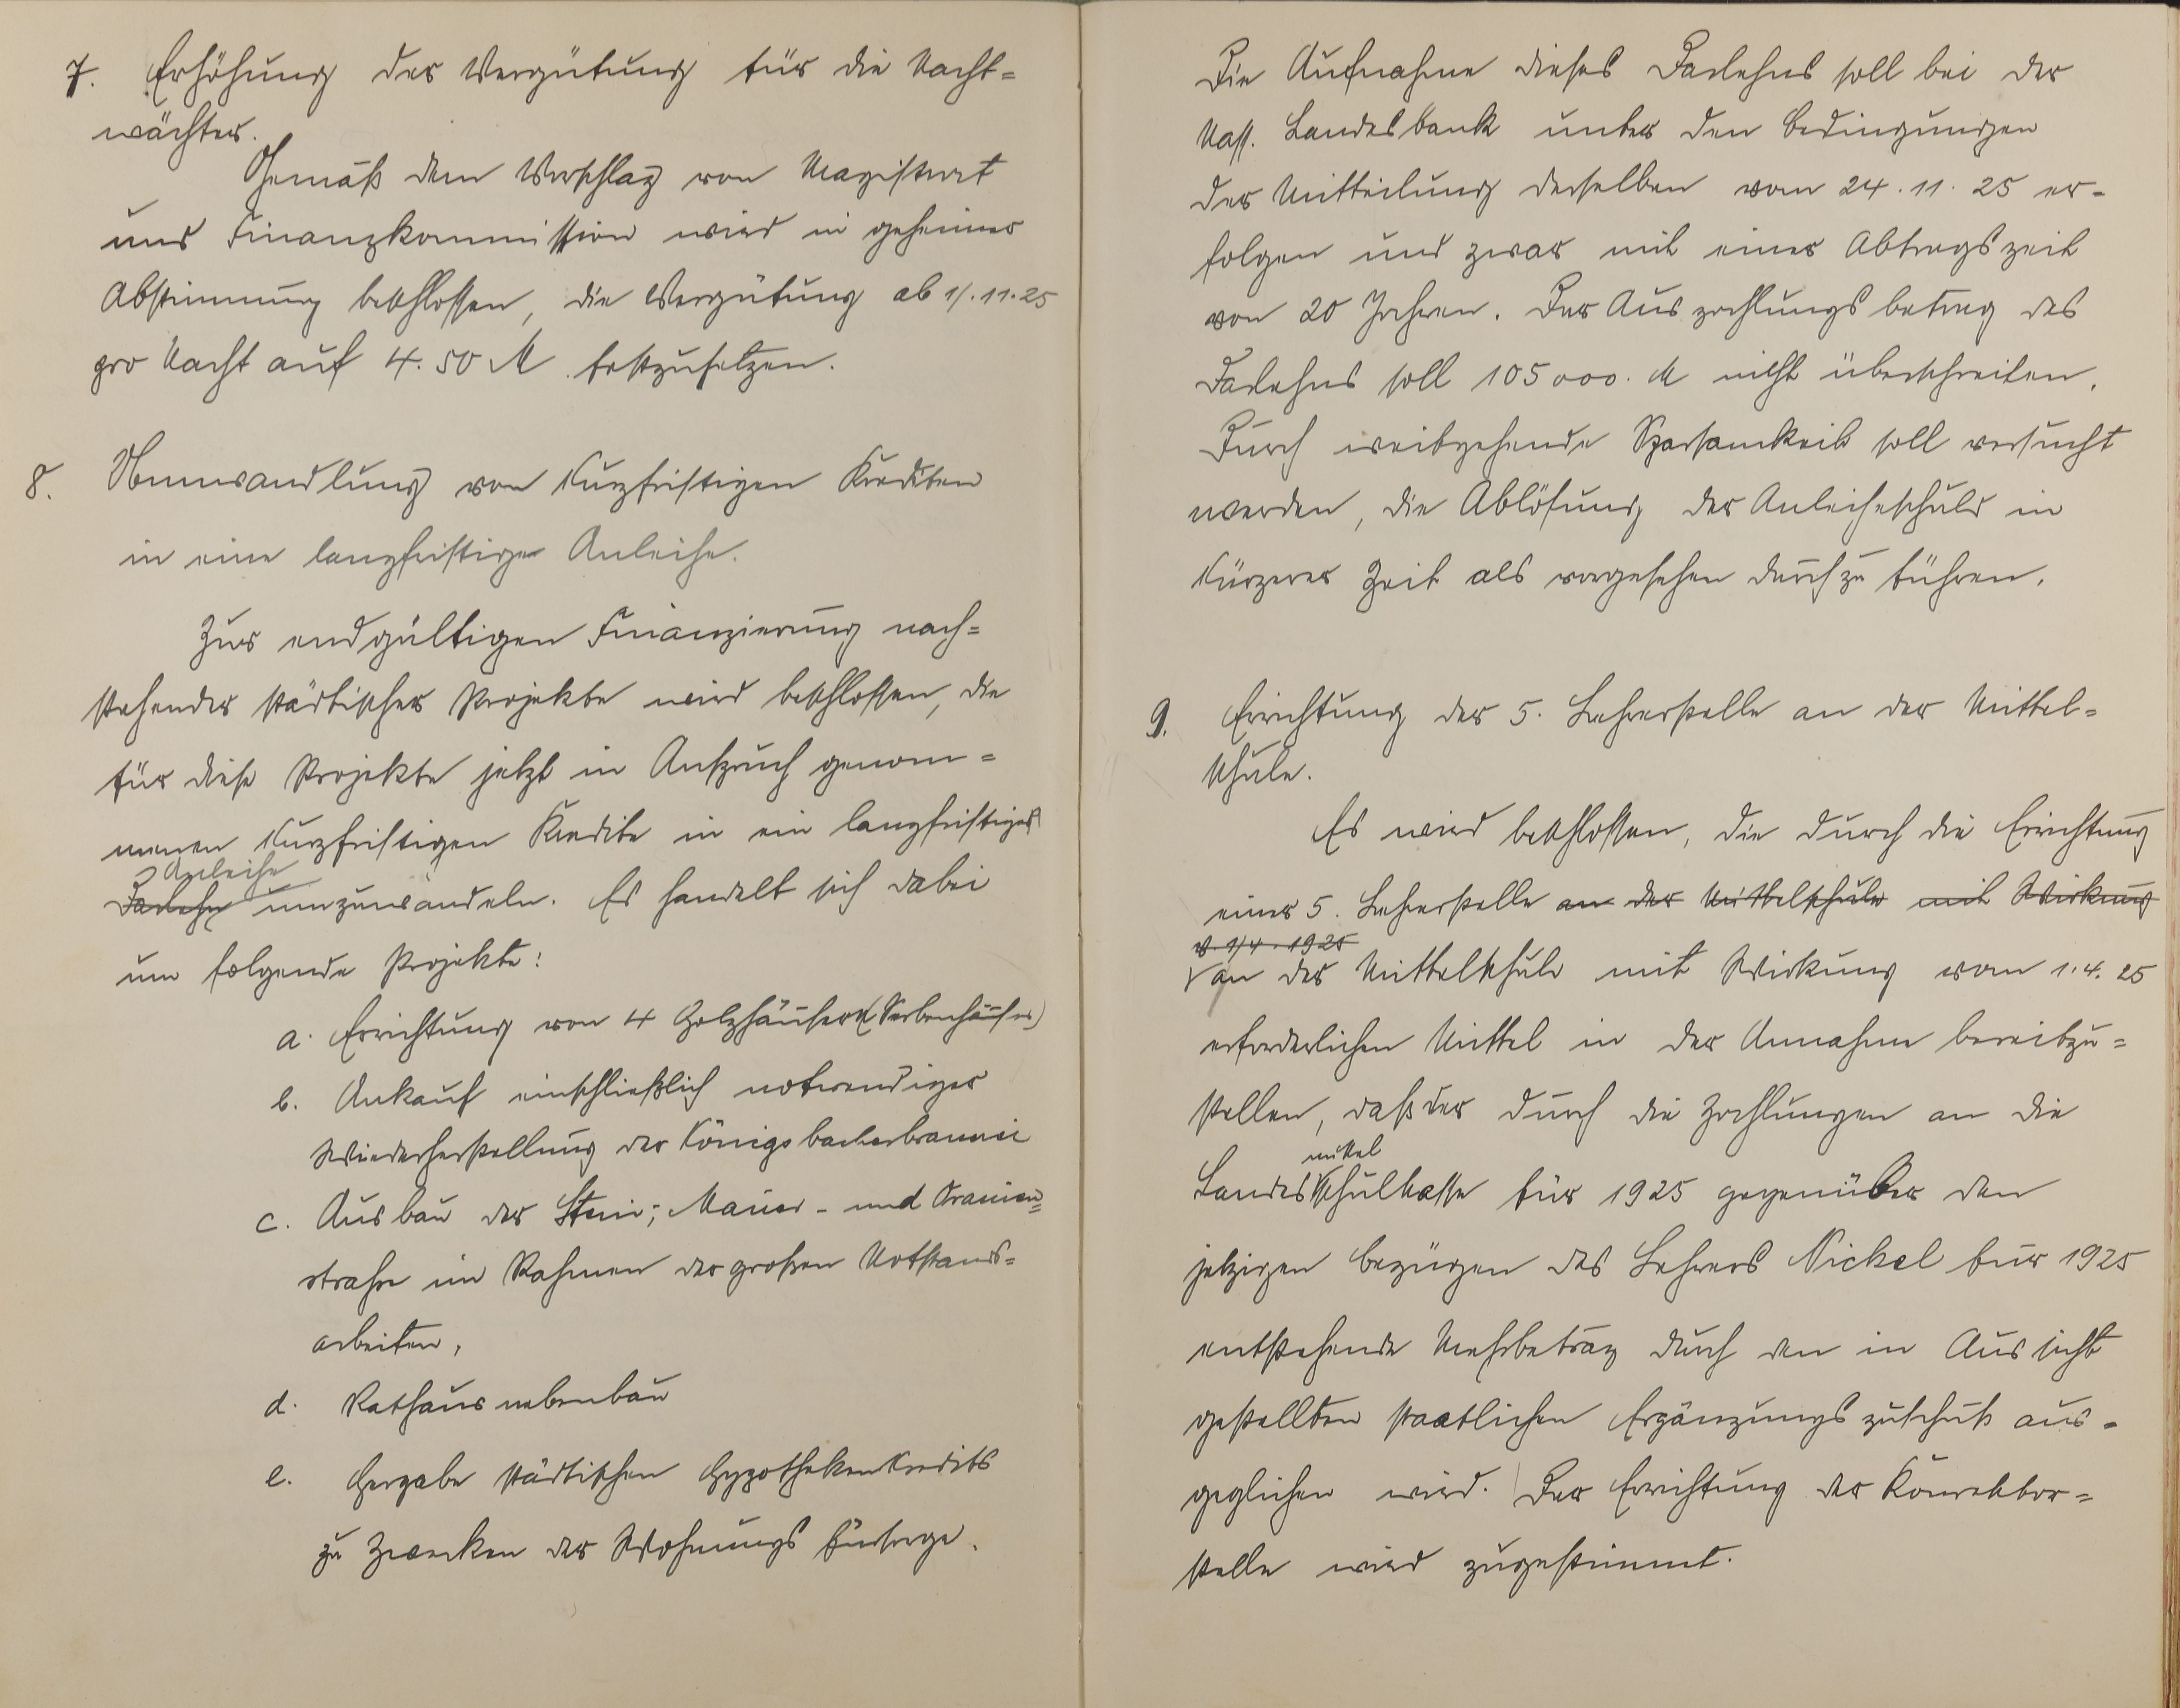 7. Erhöhung der Vergütung für die Nacht=
wächter.
Gemäß dem Vorschlag von Magistrat
und Finanzkommission wird in geheimer
Abstimmung beschlossen, die Vergütung ab 1/.11.25
pro Nacht auf 4.50 M festzusetzen.
8. Umwandlung von kurzfristigen Krediten
in eine langfristige Anleihe.
Zur endgültigen Finanzierung nach=
stehender städtischer Projekte wird beschlossen, die
für diese Projekte jetzt in Anspruch genom=
menen kurzfristigen Kredite in ein langfristiges
Anleihe
Darlehn umzuwandeln. Es handelt sich dabei
um folgende Projekte:
a. Errichtung von 4 Holzhäusern (Serbenhäuser)
b. Ankauf einschließlich notwendiger
Wiederherstellung der Königsbacherbrauerei
c. Ausbau der Stein-, Mauer- und Oranien=
straße im Rahmen der großen Notstands=
arbeiten,
d. Rathausnebenbau
e. Hergabe städtischen Hypothekenkredits
zu Zwecken der Wohnungsfürsorge.
Die Aufnahme dieses Darlehns soll bei der
Nass. Landesbank unter den Bedingungen
der Mitteilung derselben vom 24.11.25 er=
folgen und zwar mit einer Abtragszeit
von 20 Jahren. Der Auszahlungsbetrag des
Darlehns soll 105000. M nicht überschreiten.
Durch weitgehende Sparsamkeit soll versucht
werden, die Ablösung der Anleiheschuld in
kürzerer Zeit als vorgesehen durchzuführen.
9. Errichtung der 5. Lehrerstelle an der Mittel=
schule.
Es wird beschlossen, die durch die Errichtung
einer 5. Lehrerstelle an der Mittelschule mit Wirkung
v. 1/4. 1925
an der Mittelschule mit Wirkung vom 1.4.25
erforderlichen Mittel in der Annahme bereitzu=
stellen, daß der durch die Zahlungen an die
mittel
Landesschulkasse für 1925 gegenüber den
jetzigen Bezügen des Lehrers Nickel für 1925
entstehende Mehrbetrag durch den in Aussicht
gestellten staatlichen Ergänzungszuschuß aus=
geglichen wird. Der Errichtung der Konrektor=
stelle wird zugestimmt.